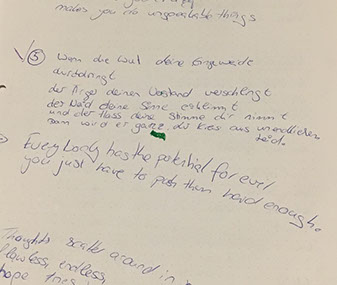 makes you do unspeakable things
5 Wenn die Wut deine Eingeweide
durchdringt
der Ärger deinen Verstand verschlingt
der Neid deine Sinne
und der Hass deine Stimme dir nimmt
dann wird er ganz der Kreis aus unendlichem
Leid.
Everybody has the potential for evil
you just have to push them hard enough.
Thoughts scatter around in
flawless, endless,
hope